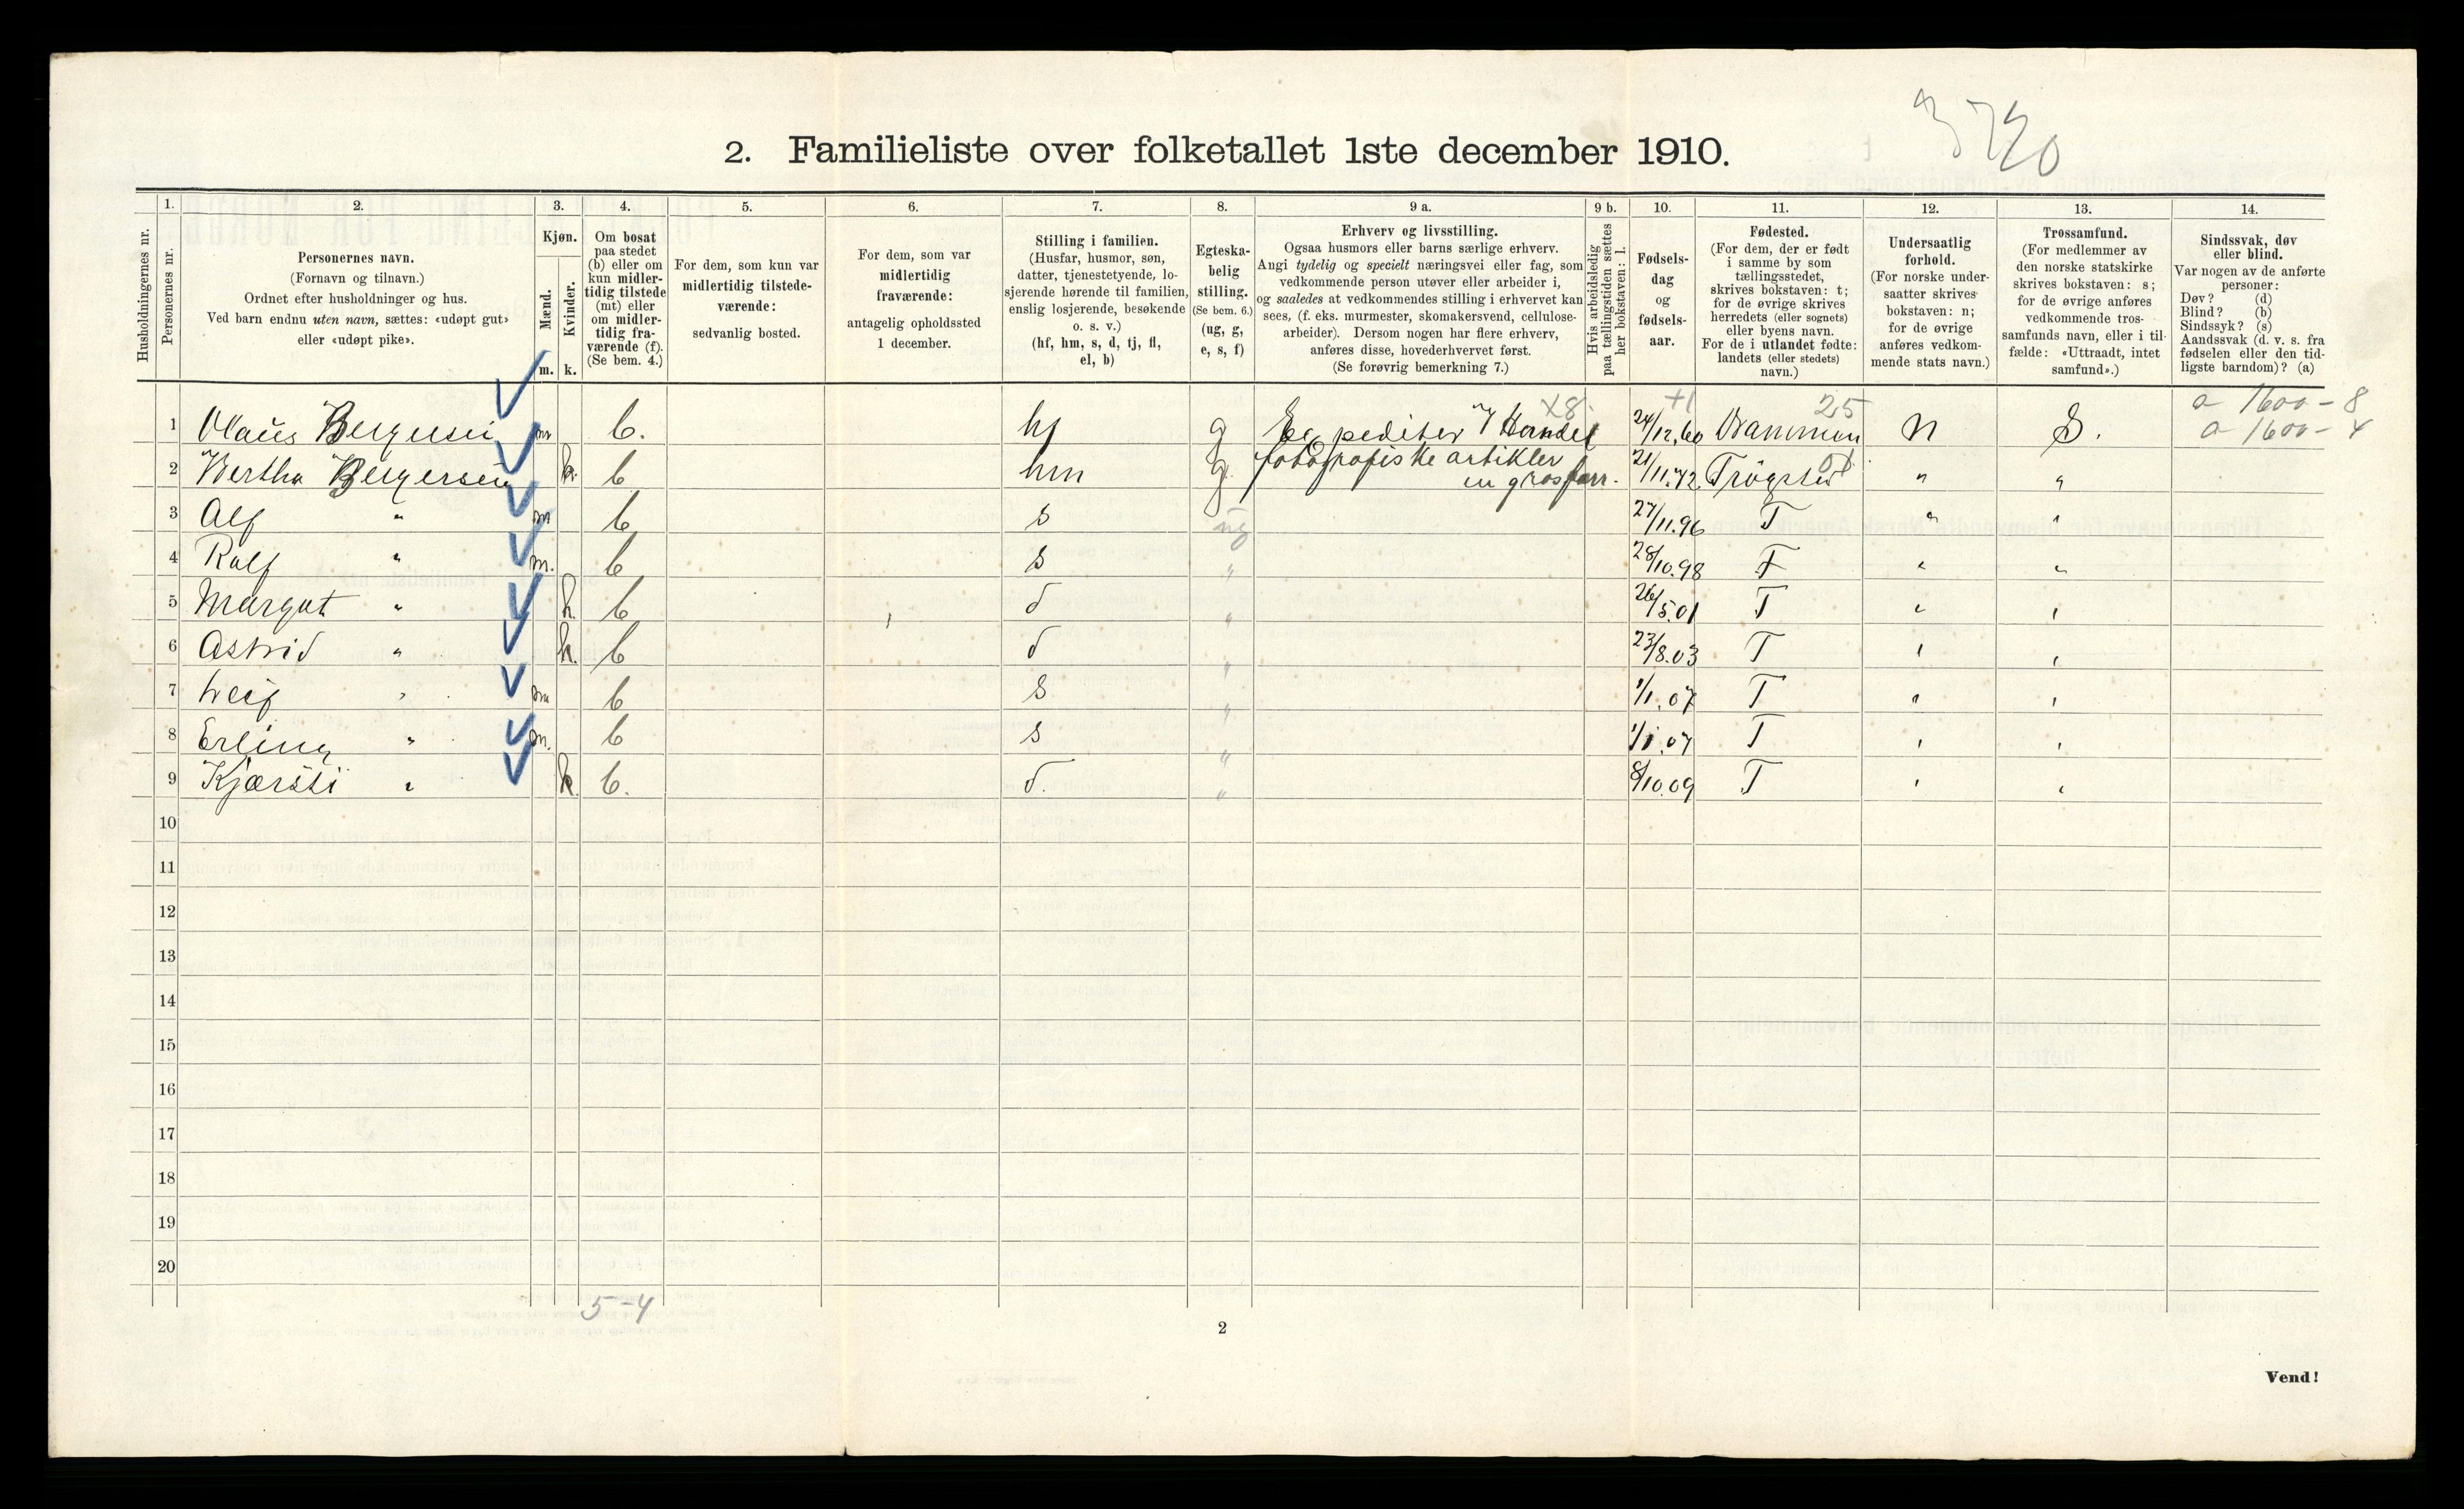 3720
2. Familieliste over folketallet 1ste december 1910.
Husholdningernes nr.
1.
Personernes nr.
2.
Personernes navn.
(Fornavn og tilnavn.)
Ordnet efter husholdninger og hus.
Ved barn endnu uten navn, sættes: «udøpt gut»
eller «udøpt pike».
3.
Kjøn.
Mænd.
Kvinder.
m. k.
4.
Om bosat
paa stedet
(b) eller om
kun midler-
tidig tilstede
(mt) eller
om midler-
tidig fra-
værende (f).
(Se bem. 4.)
5.
For dem, som kun var
midlertidig tilstede-
værende:
sedvanlig bosted.
6.
For dem, som var
midlertidig
fraværende:
antagelig opholdssted
1 december.
7.
Stilling i familien.
(Husfar, husmor, søn,
datter, tjenestetyende, lo-
sjerende hørende til familien,
enslig losjerende, besøkende
o. s. v.)
(hf, hm, s, d, tj, fl,
el, b)
8.
Egteska-
belig
stilling.
(Se bem. 6.)
(ug, g,
e, s, f)
9 a.
Erhverv og livsstilling.
Ogsaa husmors eller barns særlige erhverv.
Angi tydelig og specielt næringsvei eller fag, som
vedkommende person utøver eller arbeider i,
og saaledes at vedkommendes stilling i erhvervet kan
sees, (f. eks. murmester, skomakersvend, cellulose-
arbeider). Dersom nogen har flere erhverv,
anføres disse, hovederhvervet først.
(Se forøvrig bemerkning 7.)
9 b.
Hvis arbeidsledig
paa tællingstiden sættes
her bokstaven: l.
10.
Fødsels-
dag
og
fødsels-
aar.
11.
Fødested.
(For dem, der er født
i samme by som
tællingsstedet,
skrives bokstaven: t;
for de øvrige skrives
herredets (eller sognets)
eller byens navn.
For de i utlandet fødte:
landets (eller stedets)
navn.)
12.
Undersaatlig
forhold.
(For norske under-
saatter skrives
bokstaven: n;
for de øvrige
anføres vedkom-
mende stats navn.)
13.
Trossamfund.
(For medlemmer av
den norske statskirke
skrives bokstaven: s;
for de øvrige anføres
vedkommende tros-
samfunds navn, eller i til-
fælde: «Uttraadt, intet
samfund».)
14.
Sindssvak, døv
eller blind.
Var nogen av de anførte
personer:
Døv? (d)
Blind? (b)
Sindssyk? (s)
Aandssvak (d. v. s. fra
fødselen eller den tid-
ligste barndom)? (a)
x8 +1 25 a 1600 - 8
1 Olaus Bergersen m b. hf g Expeditør i Handel 24/12.60 Drammen n S. a 1600 - 4
2 Bertha Bergersen k. b hm g fotografiske artikler en gros forr. 21/11.72 Trøgstad 01 " "
3 Alf " m b s ug 27/11.96 T " "
4 Rolf " m. b s " 28/10.98 T " "
5 Margot " k. b d " 26/5.01 T " "
6 Astrid " k. b d " 23/8.03 T " "
7 Leif " m b s " 1/1.07 T " "
8 Erling " m. b s " 1/1.07 T " "
9 Kjærsti " k. b. d. " 8/10.09 T " "
10
11
12
13
14
15
16
17
18
19
20
5-4
2
Vend!